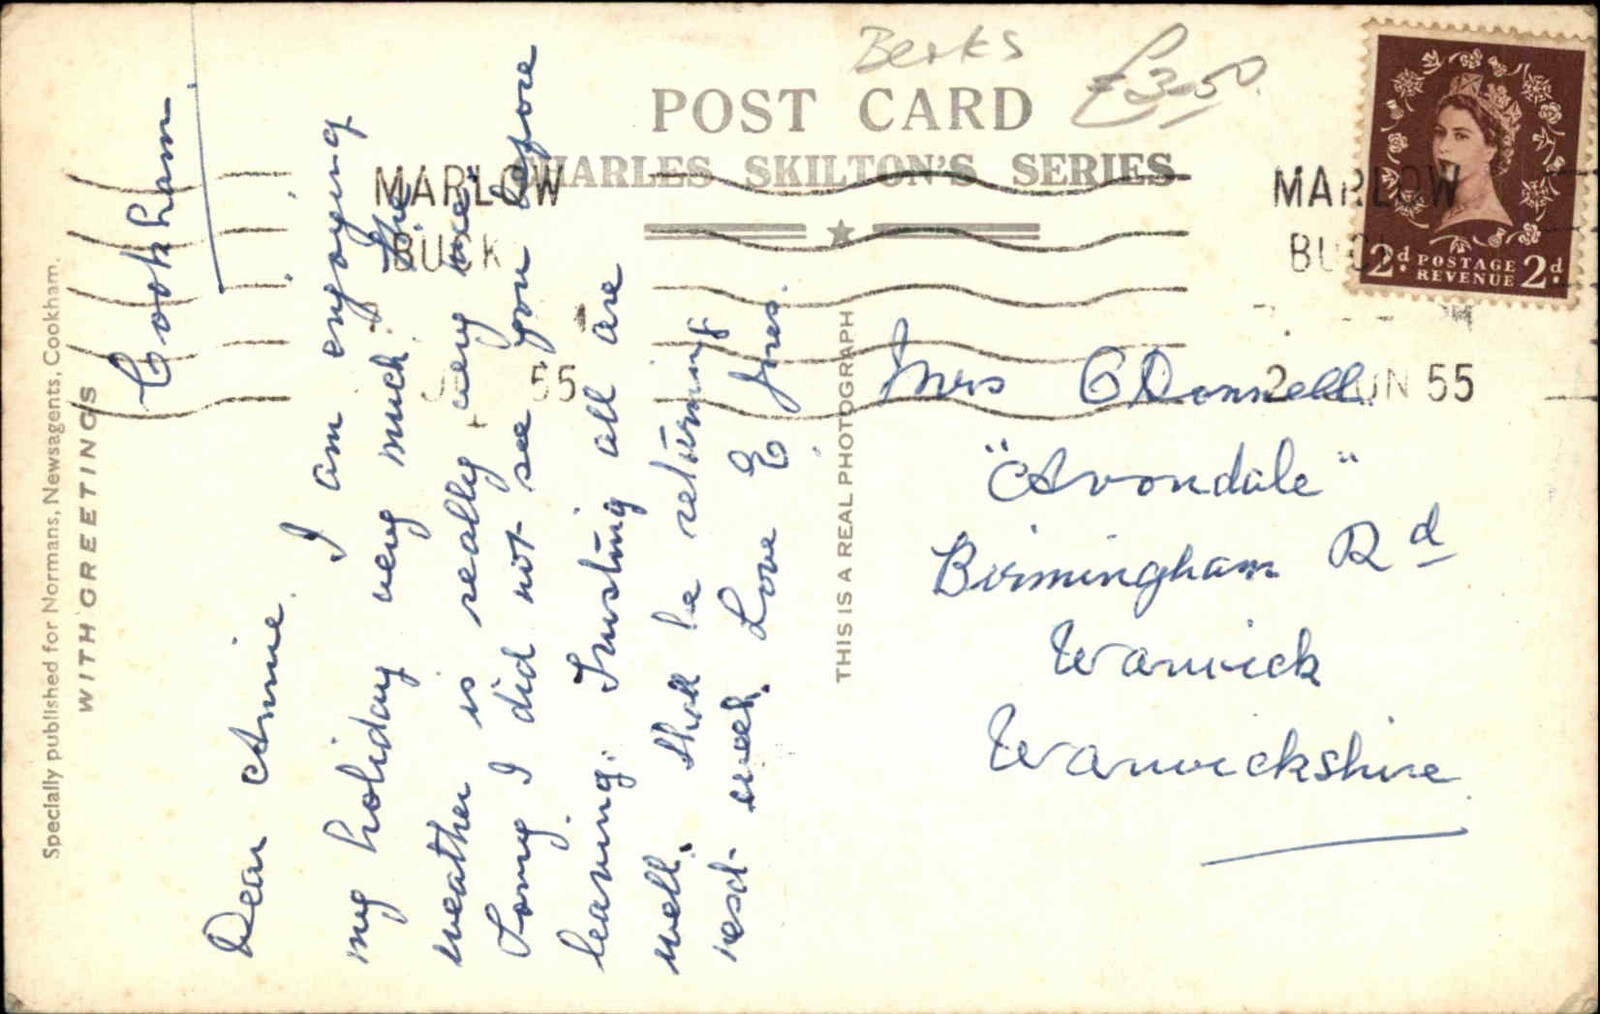 Berks £3-50
POST CARD
CHARLES SKILTON'S SERIES
MARLOW
BUCK
55
MARLOW
BUC
2 UN 55
2d POSTAGE REVENUE 2d
Specially published for Normans, Newsagents, Cookham.
WITH GREETINGS
THIS IS A REAL PHOTOGRAPH
Cookham.
Dear Annie.
I am enjoying
my holiday very much the
weather is really very nice
Sorry I did not see you before
leaving. Trusting all are
well. Shall be returning
next week. Love E Jones.
Mrs O'Donnell.
"Avondale"
Birmingham Rd
Warwick
Warwickshire.